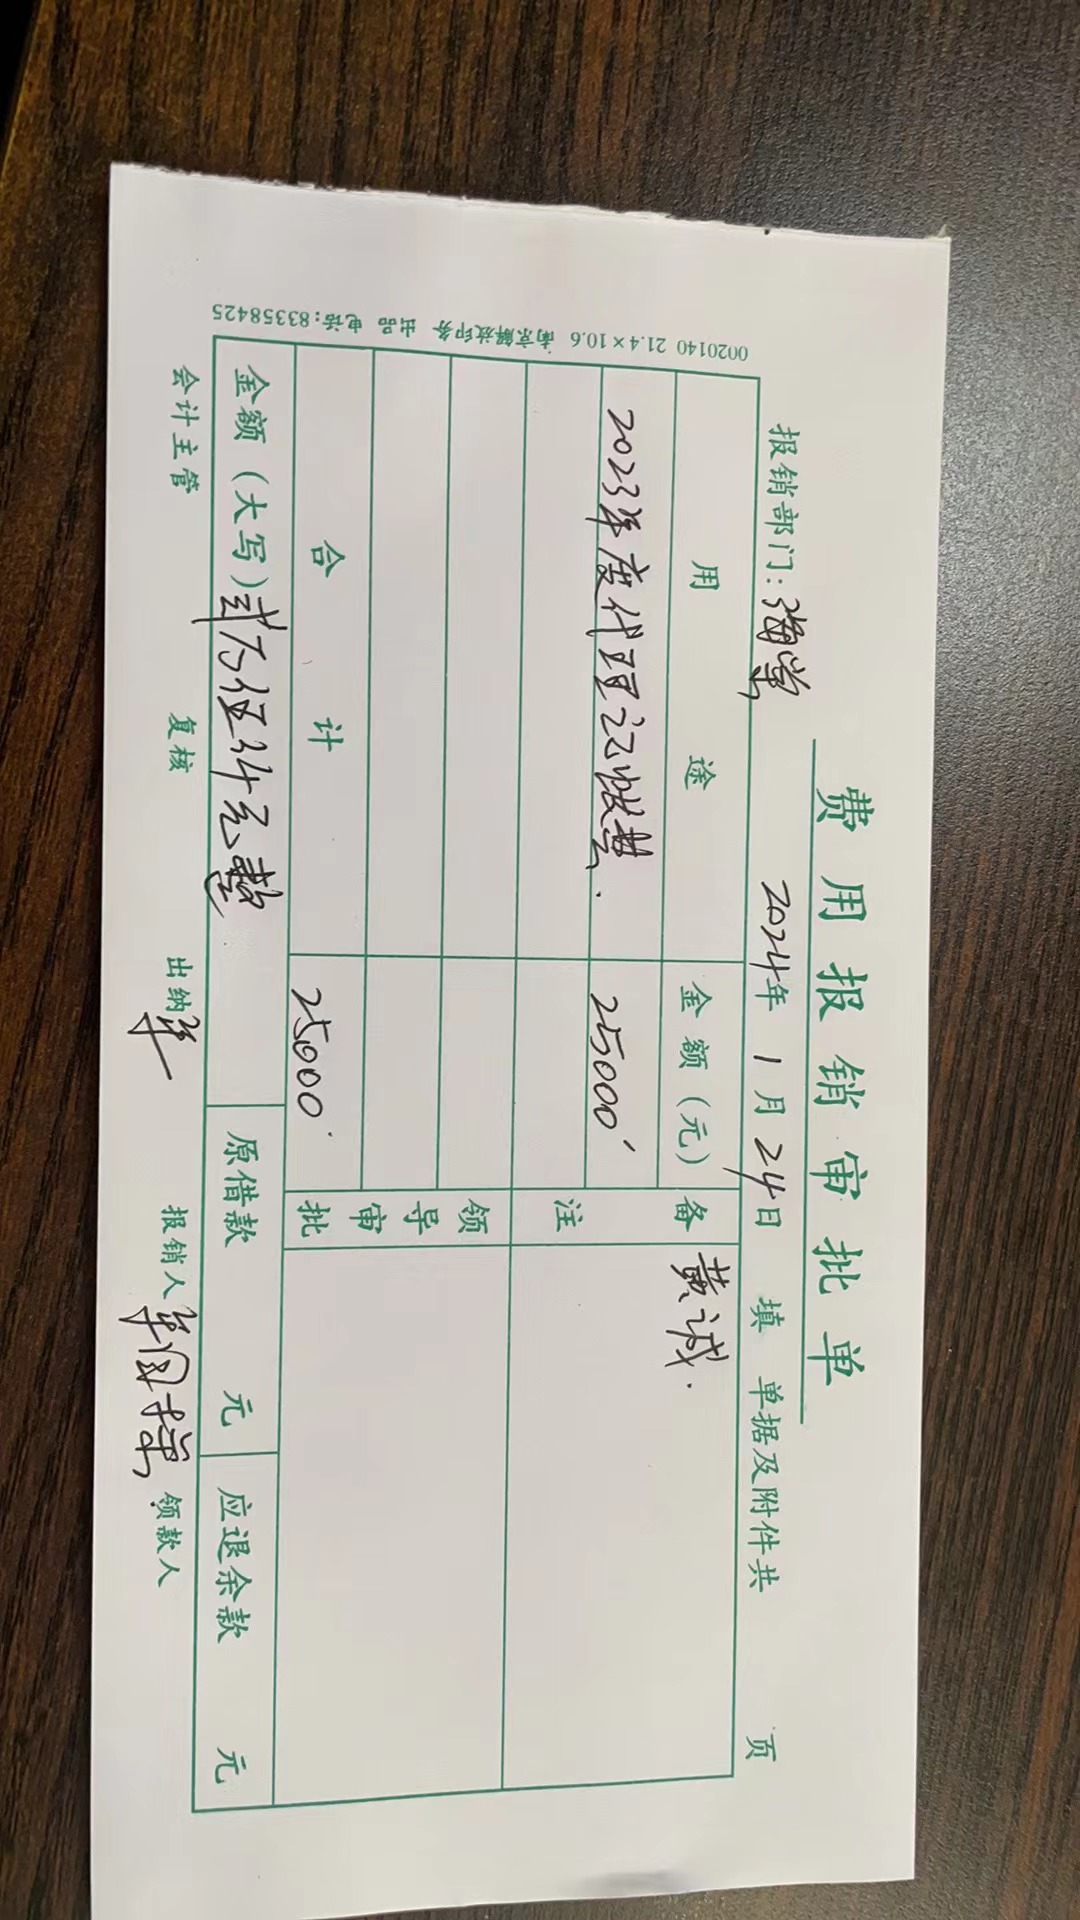 费用报销审批单
报销部门：海棠 2024年 1月 24日 填 单据及附件共 页
用 途 金 额（元） 备 注 黄诚.
2023年度代理记帐费. 25000
领导审批
合 计 25000
金额（大写）贰万伍仟元整 原借款 元 应退余款 元
会计主管 复核 出纳 报销人 领款人
0020140 21.4×10.6 南京解放印务 出品 电话:83358425